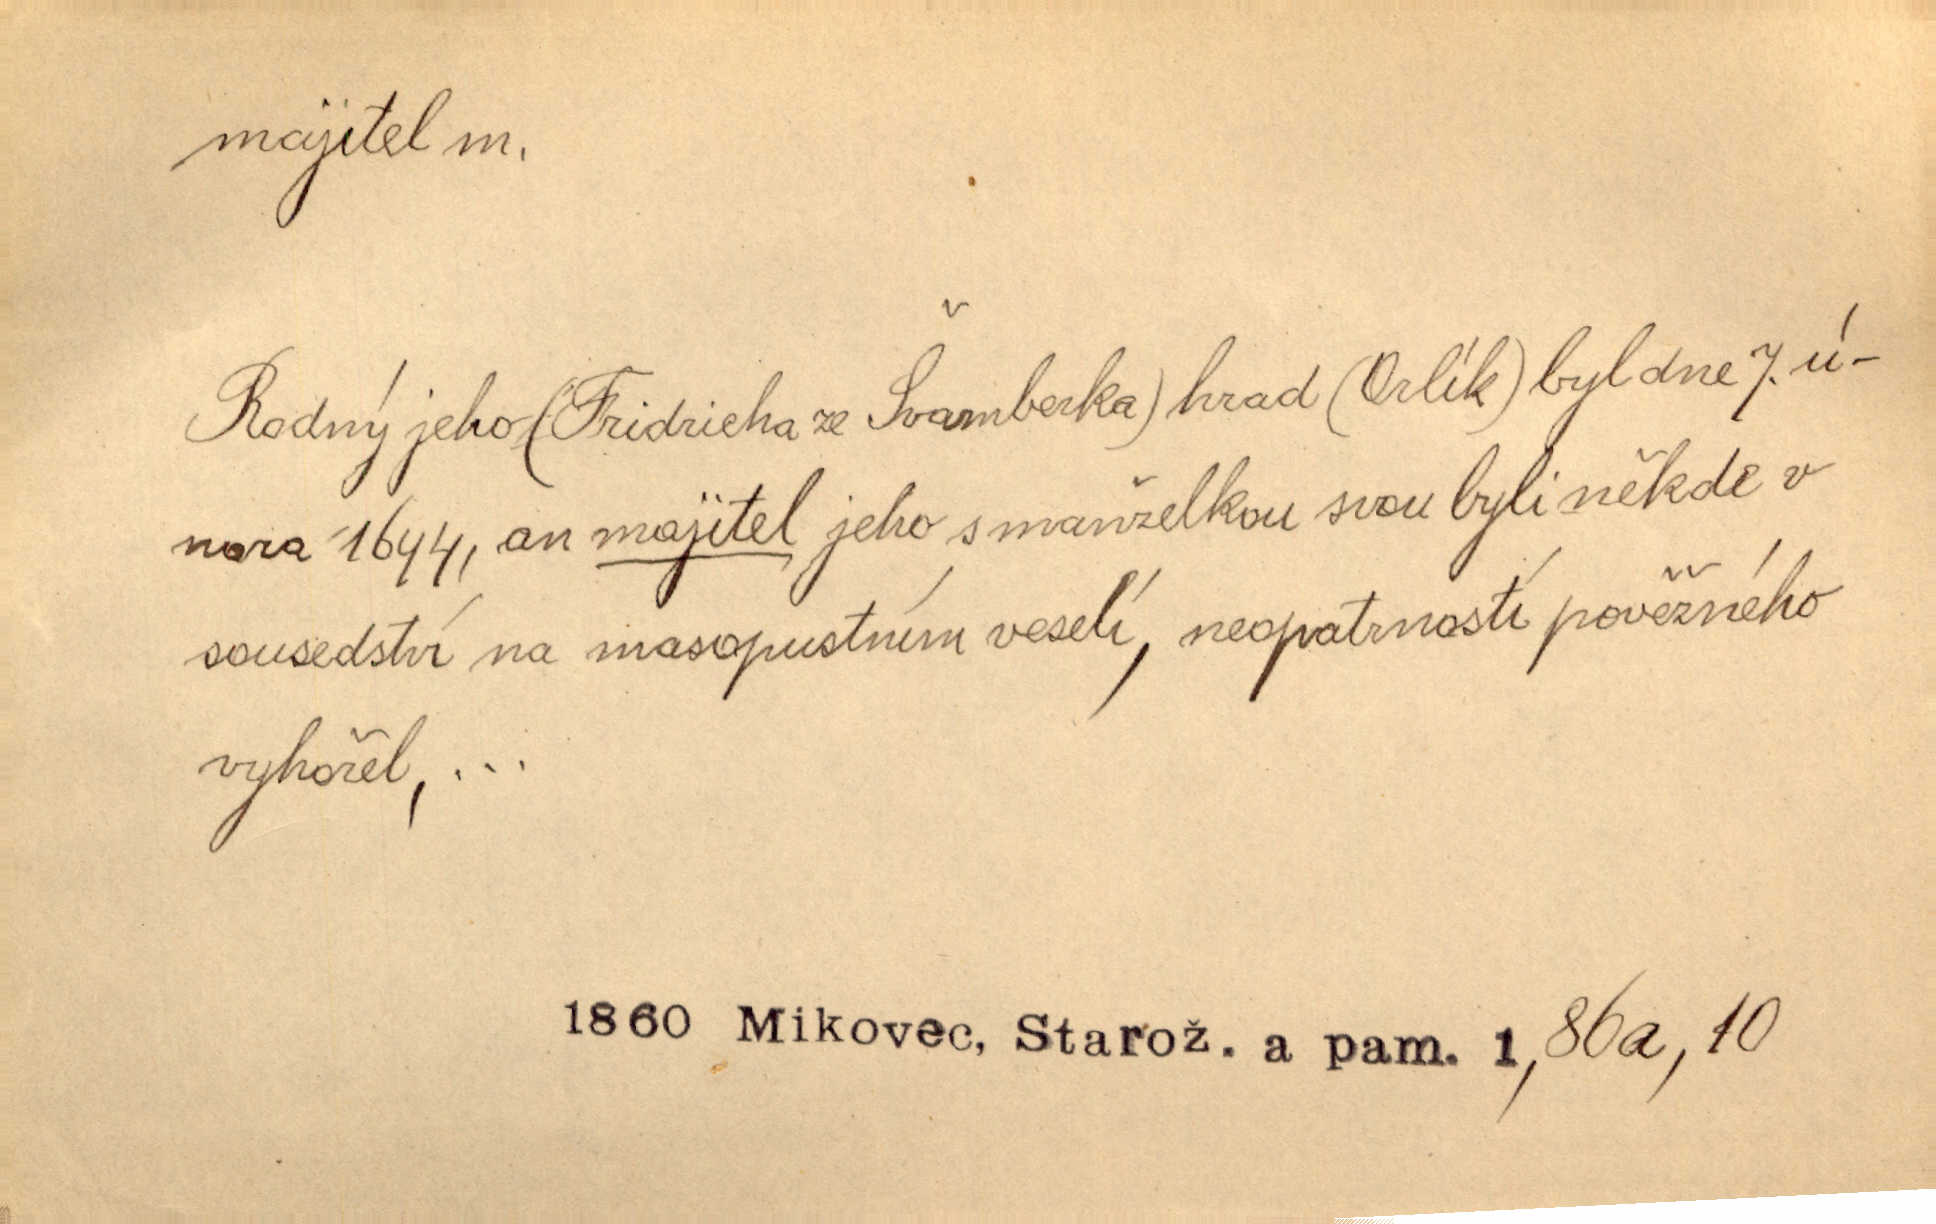 majitel m.
Rodný jeho (Fridricha ze Švamberka) hrad (Orlík) byl dne 7. ú-
nora 1644, an majitel jeho s manželkou svou byli někde v
sousedství na masopustním veselí, neopatrností pověžného
vyhořel, ...
1860 Mikovec, Starož. a pam. 1, 86a, 10